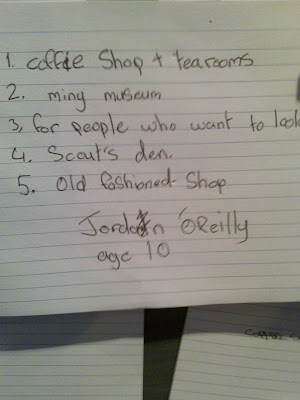 1. coffie Shop + tearooms
2. miny museum
3, for people who want to look
4. Scout's den.
5. Old fashioned Shop
Jordan O'Reilly
age 10